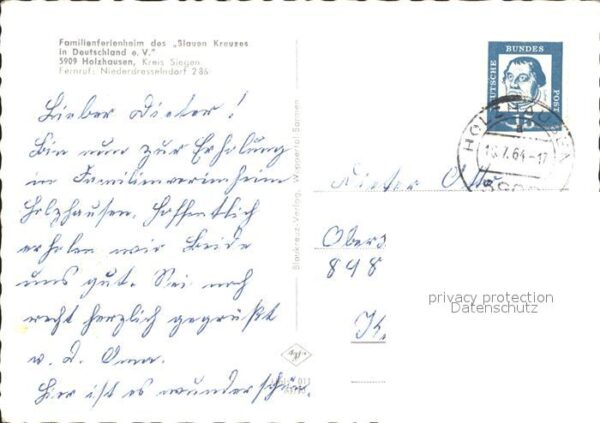 Familienferienheim des „Blauen Kreuzes
in Deutschland e. V."
5909 Holzhausen, Kreis Siegen
Fernruf: Niederdresselndorf 286
Lieber Dieter!
Bin nun zur Erholung
im Familienvereinheim
Holzhausen. Hoffentlich
erholen wir Beide
uns gut. Sei noch
recht herzlich gegrüßt
v. d. Oma.
Hier ist es wunderschön.
Blaukreuz-Verlag, Wuppertal-Barmen
DEUTSCHE
BUNDES
POST
15
HOLZHAUSEN
16.7.64-17
5909
Dieter
Obers
898
K.
privacy protection
Datenschutz